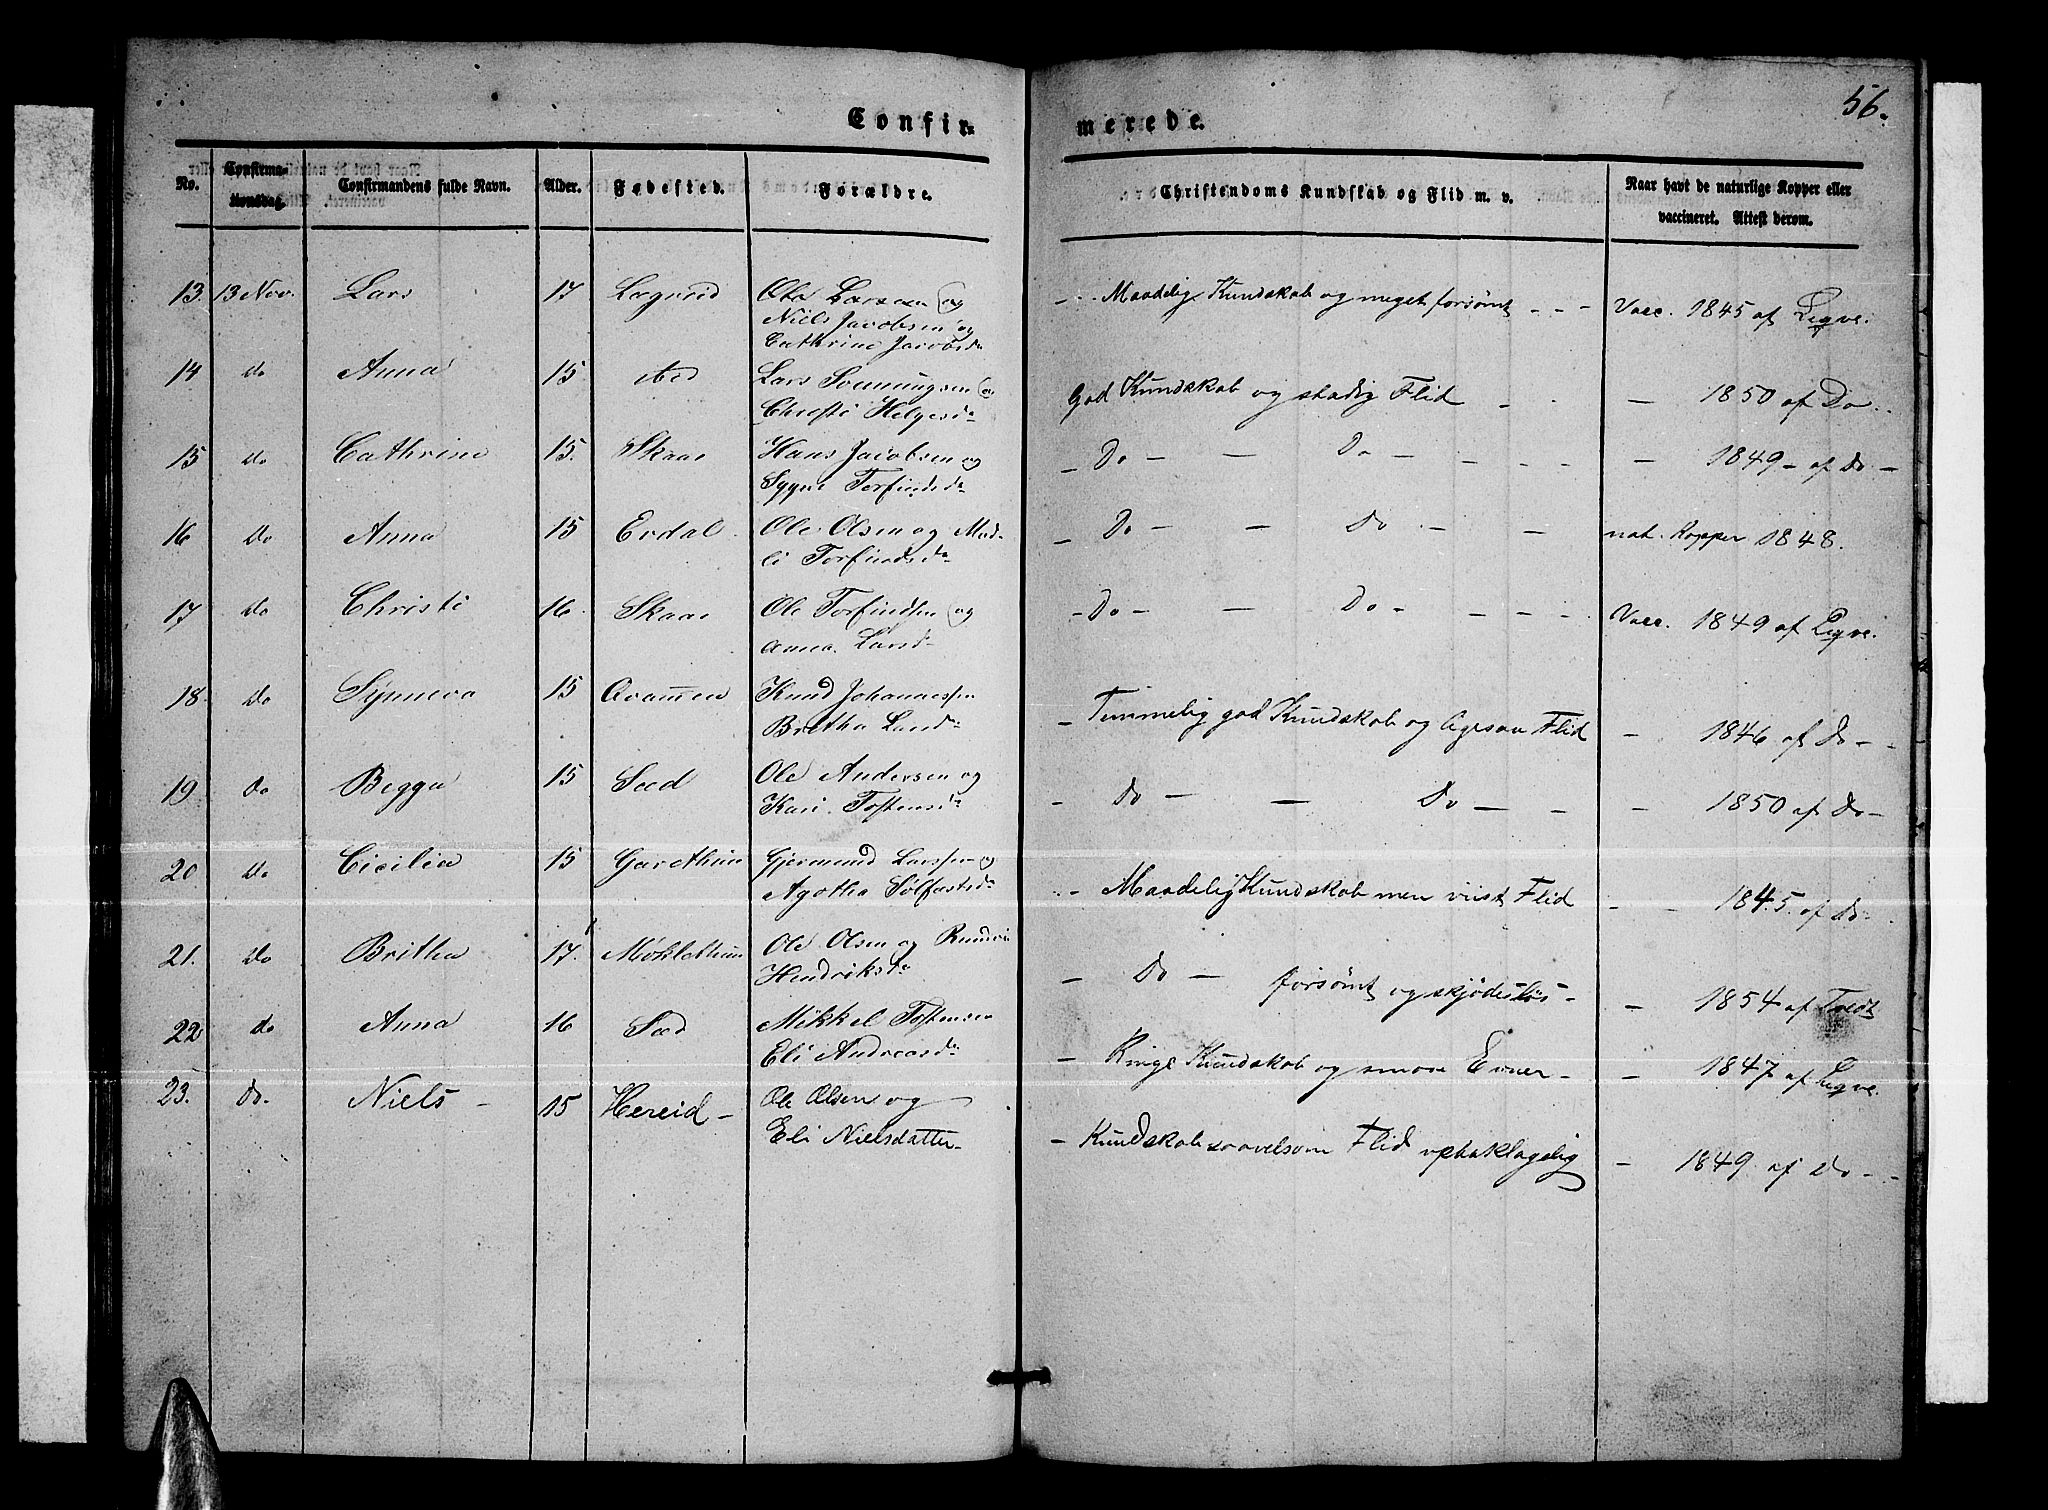 56.
Confirmerede.
No. Confirmationsdag. Confirmandens fulde Navn. Alder. Fødested. Forældre. Christendoms Kundskab og Flid m. v. Naar havt de naturlige Kopper eller vaccineret. Attest derom.
13. 13 Nov. Lars 17 Legreid Ole Larsen (og
Niels Jacobsen og
Cathrine Jacobsd. - Maadelig Kundskab og meget forsømt - - - Vacc. 1845 af Legve.
14 do Anna 15 Aed Lars Sonnungsen (og
Christi Helgesd. God Kundskab og stadig Flid - - - 1850 af Do.
15 do Cathrine 15. Skaar Hans Jacobsen og
Sygni Torfindsd. - Do - - Do - - - - - 1849 - af Do -
16 do Anna 15 Erdal Ole Olsen og Mad-
li Torfindsd. - Do - - Do - - nat. Kopper 1848.
17 do Christi 16. Skaar Ole Torfindsen (og
Anna Larsd. - Do - - Do - - - - Vacc. 1849 af Legve.
18 do Synneva 15 Qvammen Knud Johannessen
Britha Larsd. - Temmelig god Kundskab og ligesaa Flid - 1846 af Do - -
19 do Begga 15 Sæd Ole Andersen og
Kari Tostensd. - Do - - Do - - - 1850 af Do -
20 do Cicilia 15 Garethun Gjermund Larssen og
Agatha Sølfæstsd. - Maadelig Kundskab men viist Flid - - 1845. af Do.
21. do Britha 17. Møklethun Ole Olsen og
Hendriksd. - Do - forsømt og skjødesløs - - 1854 af Tvedt
22 do Anna 16 Sæd Mikkel Tostensen
Eli Andreasd. - Ringe Kundskab og smaa Evner - - 1847 af Legve.
23. do. Niels - 15 Hereid - Ole Olsen og
Eli Nielsdatter - - Kundskab saavelsom Flid upaaklagelig - 1849 af Do - -